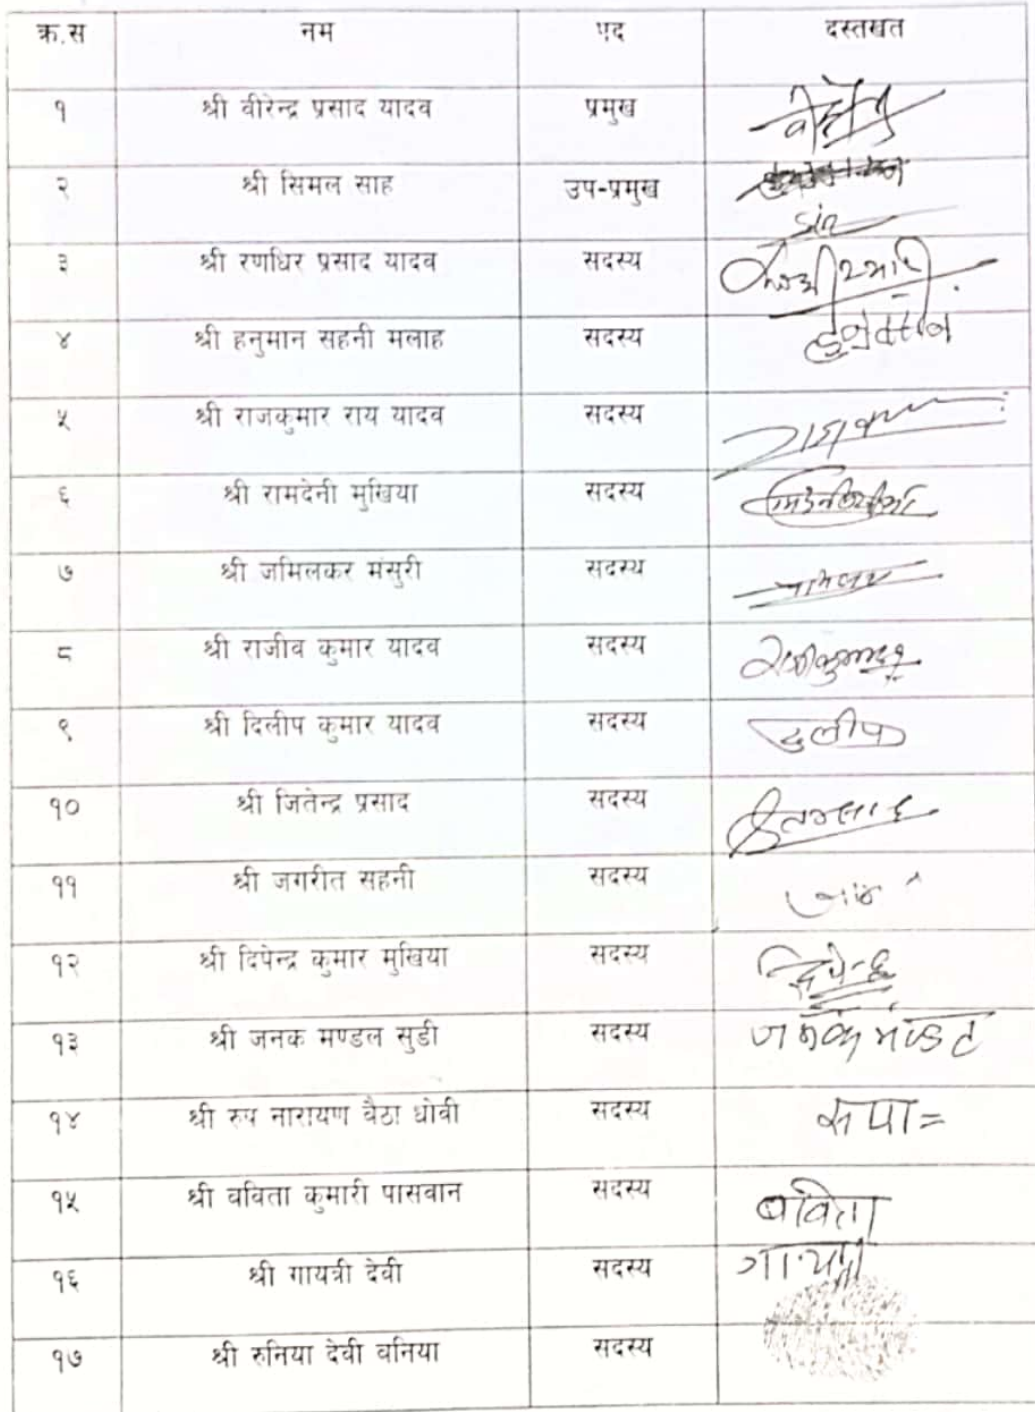 क्र.स नम पद दस्तखत
१ श्री वीरेन्द्र प्रसाद यादव प्रमुख
२ श्री सिमल साह उप-प्रमुख
३ श्री रणधिर प्रसाद यादव सदस्य
४ श्री हनुमान सहनी मलाह सदस्य
५ श्री राजकुमार राय यादव सदस्य
६ श्री रामदेनी मुखिया सदस्य
७ श्री जमिलकर मंसुरी सदस्य
८ श्री राजीव कुमार यादव सदस्य
९ श्री दिलीप कुमार यादव सदस्य दुलीप
१० श्री जितेन्द्र प्रसाद सदस्य
११ श्री जगरीत सहनी सदस्य
१२ श्री दिपेन्द्र कुमार मुखिया सदस्य
१३ श्री जनक मण्डल सुडी सदस्य
१४ श्री रुप नारायण बैठा धोवी सदस्य
१५ श्री वविता कुमारी पासवान सदस्य बविता
१६ श्री गायत्री देवी सदस्य
१७ श्री रुनिया देवी वनिया सदस्य